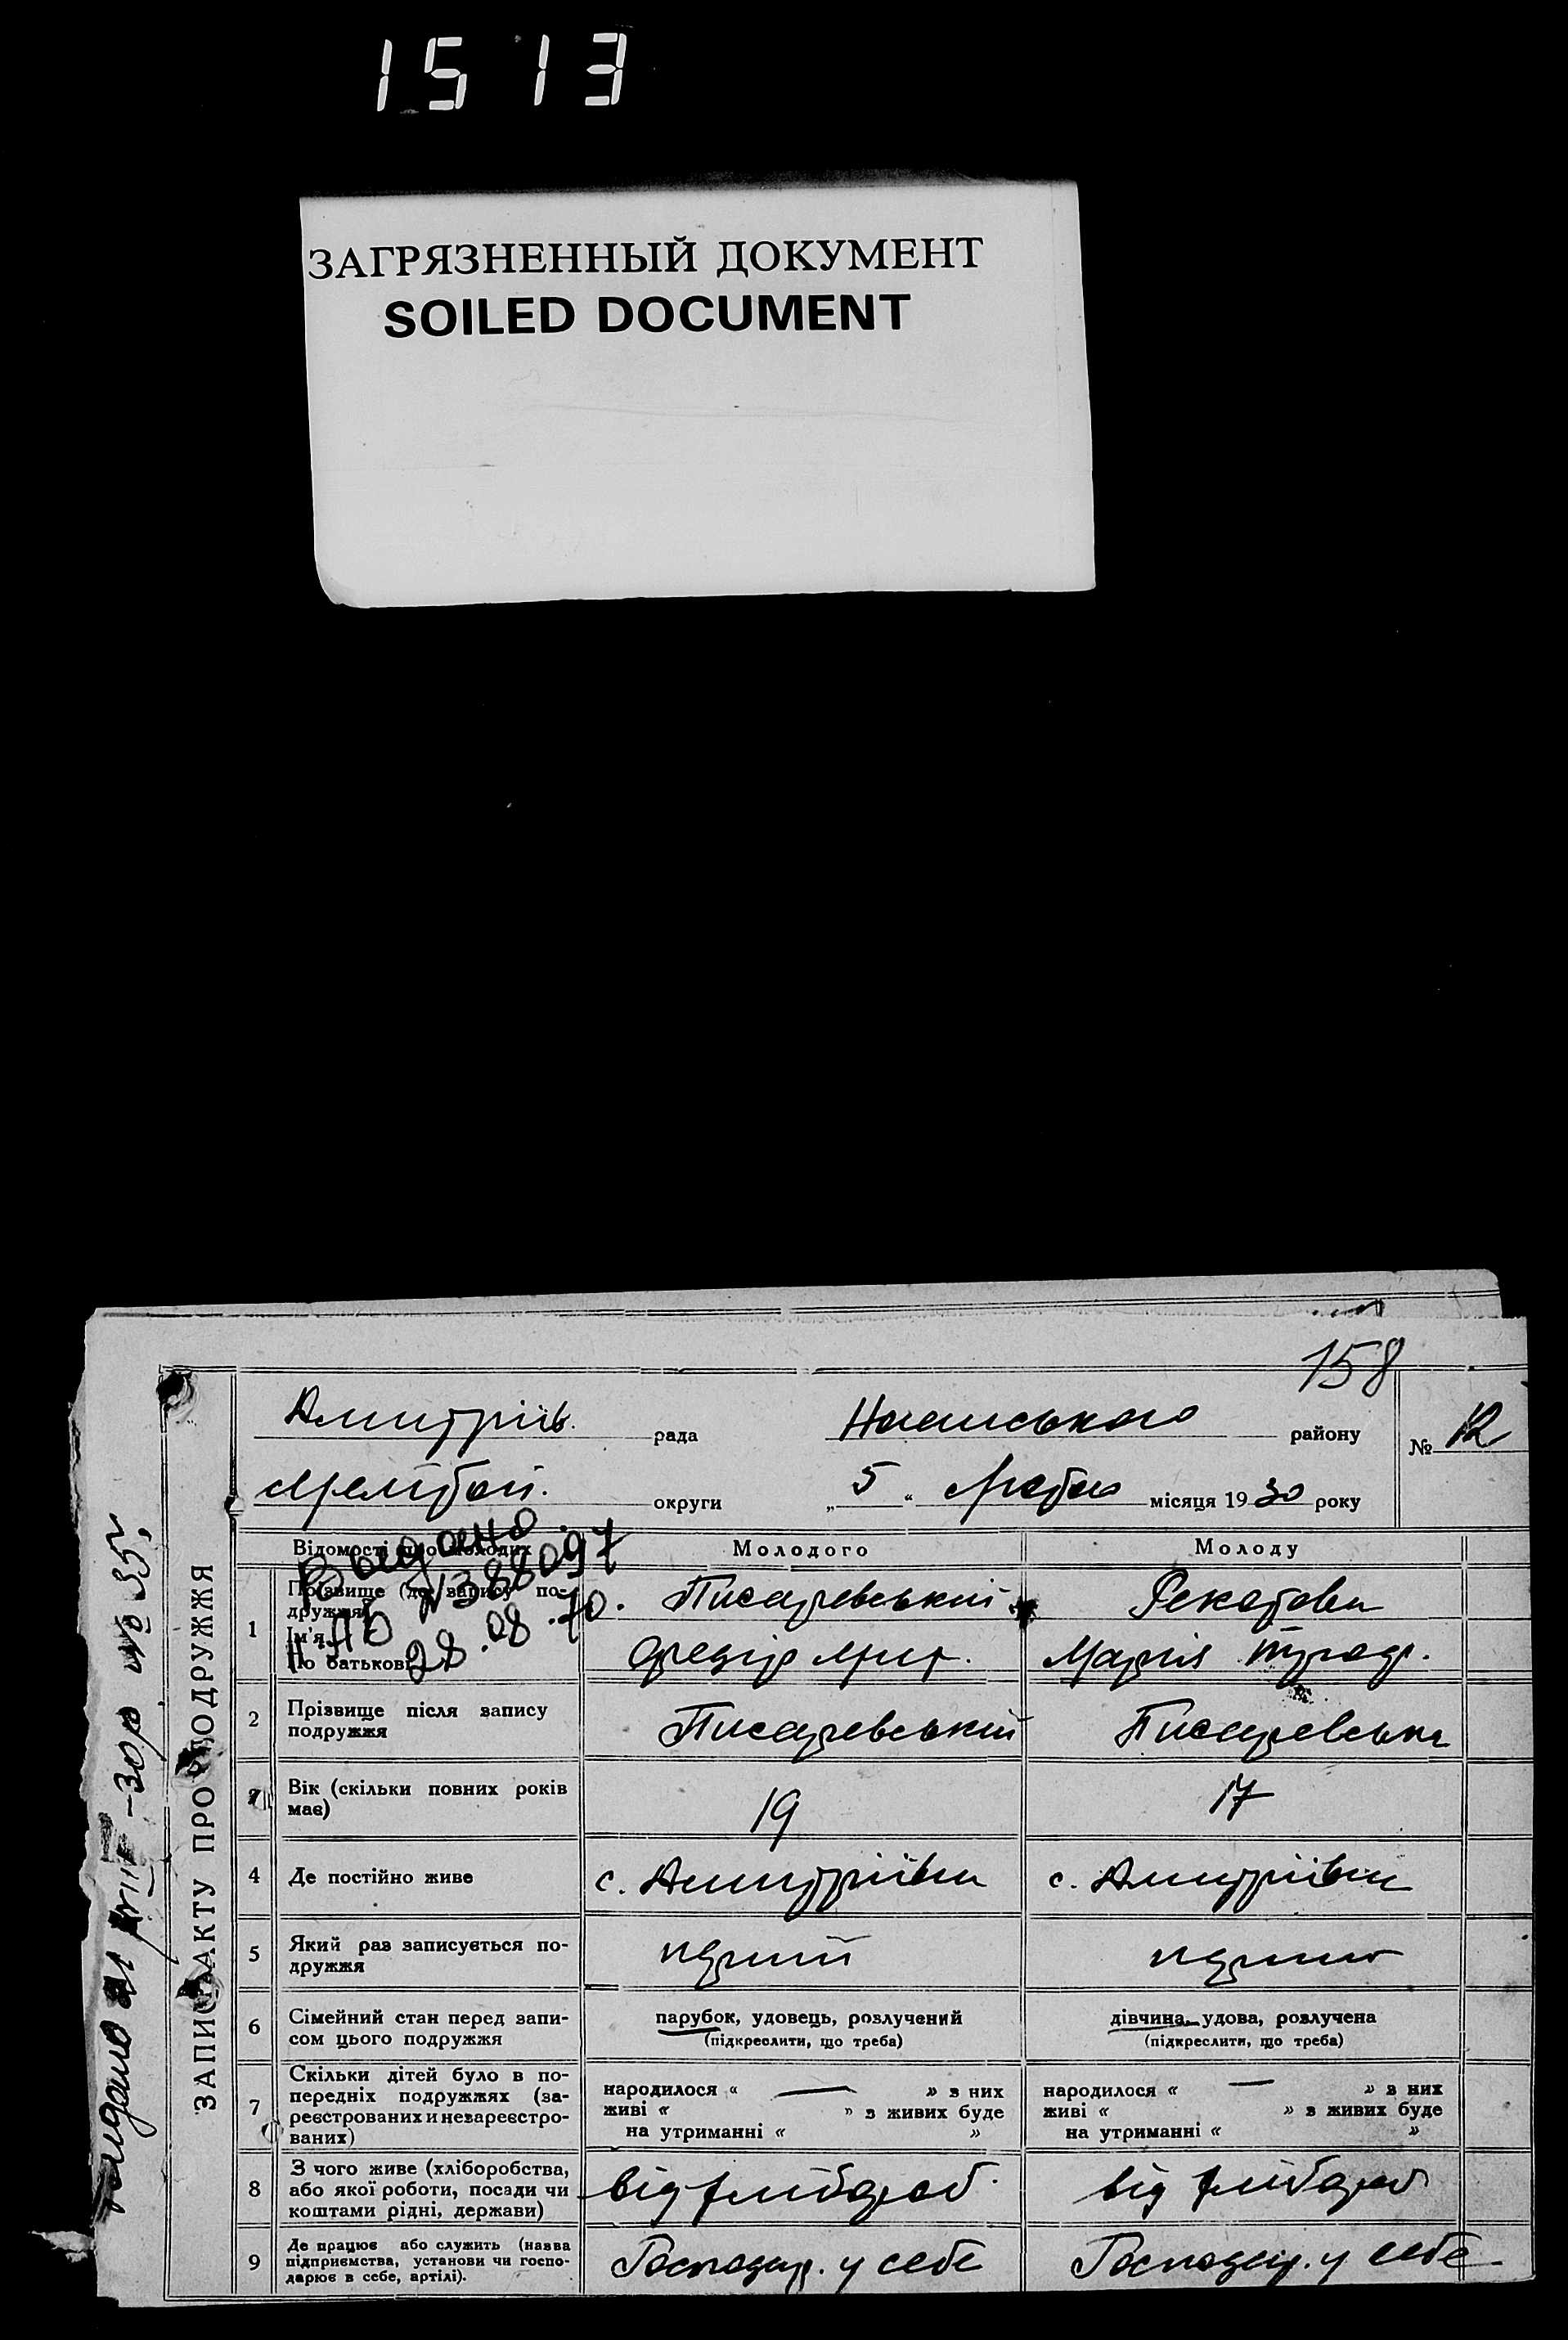 1513
ЗАГРЯЗНЕННЫЙ ДОКУМЕНТ
SOILED DOCUMENT
158
Дмитрів. рада району № 12
округи „ 5 “ Лютого місяця 1930 року
ЗАПИС АКТУ ПРО ПОДРУЖЖЯ
Відомості про молодих Молодого Молоду
Выдано
АБ №388097
28.08.70.
1 Прізвище (до запису подружжя) Писаревський
Ім'я
По батькові Федір Марія
2 Прізвище після запису подружжя Писаревський Писаревська
Вік (скільки повних років має) 19 17
4 Де постійно живе с. Дмитріівка с. Дмитріівка
5 Який раз записується по-
дружжя перший перший
6 Сімейний стан перед запи- парубок, удовець, розлучений дівчина, удова, розлучена
сом цього подружжя (підкреслити, що треба) (підкреслити, що треба)
7 Скільки дітей було в по-
передніх подружжях (за- народилося « — » з них народилося « — » з них
реєстрованих и незареєстро- живі « » з живих буде живі « » з живих буде
ваних) на утриманні « » на утриманні « »
8 З чого живе (хліборобства,
або якої роботи, посади чи від хлібороб. від хлібороб
коштами рідні, держави)
9 Де працює або служить (назва
підприємства, установи чи госпо- Господар. у себе Господар. у себе
дарює в себе, артілі).